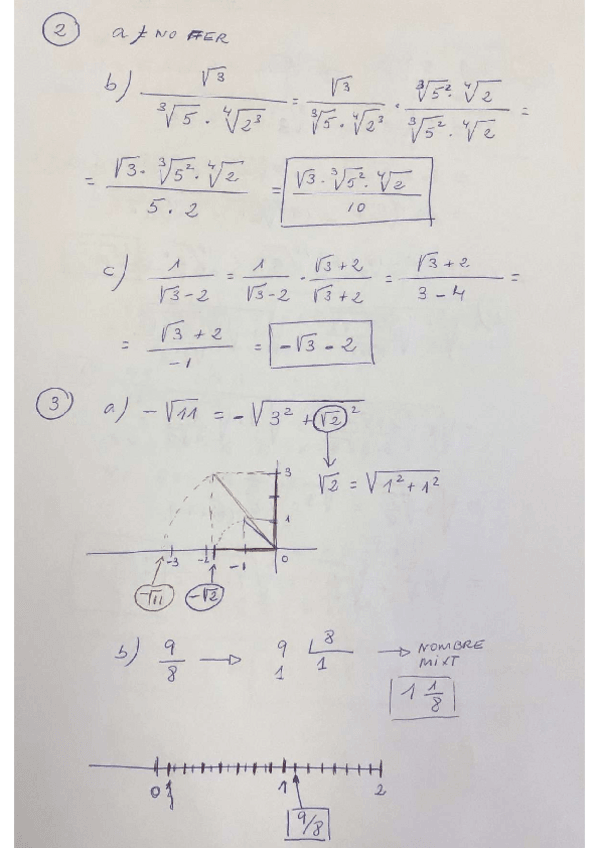 ② a) NO FER
b) √3 / (∛5 · ∜2³) = √3 / (∛5 · ∜2³) · (∛5² · ∜2) / (∛5² · ∜2) =
= (√3 · ∛5² · ∜2) / (5 · 2) = (√3 · ∛5² · ∜2) / 10
c) 1 / (√3 - 2) = 1 / (√3 - 2) · (√3 + 2) / (√3 + 2) = (√3 + 2) / (3 - 4) =
= (√3 + 2) / -1 = -√3 - 2
③ a) -√11 = -√(3² + √2²)
√2 = √(1² + 1²)
3
1
-3 -2 -1 0
-√11 -√2
b) 9/8 → 9 8 → NOMBRE
1 1 MIXT
1 1/8
0 1 2
9/8